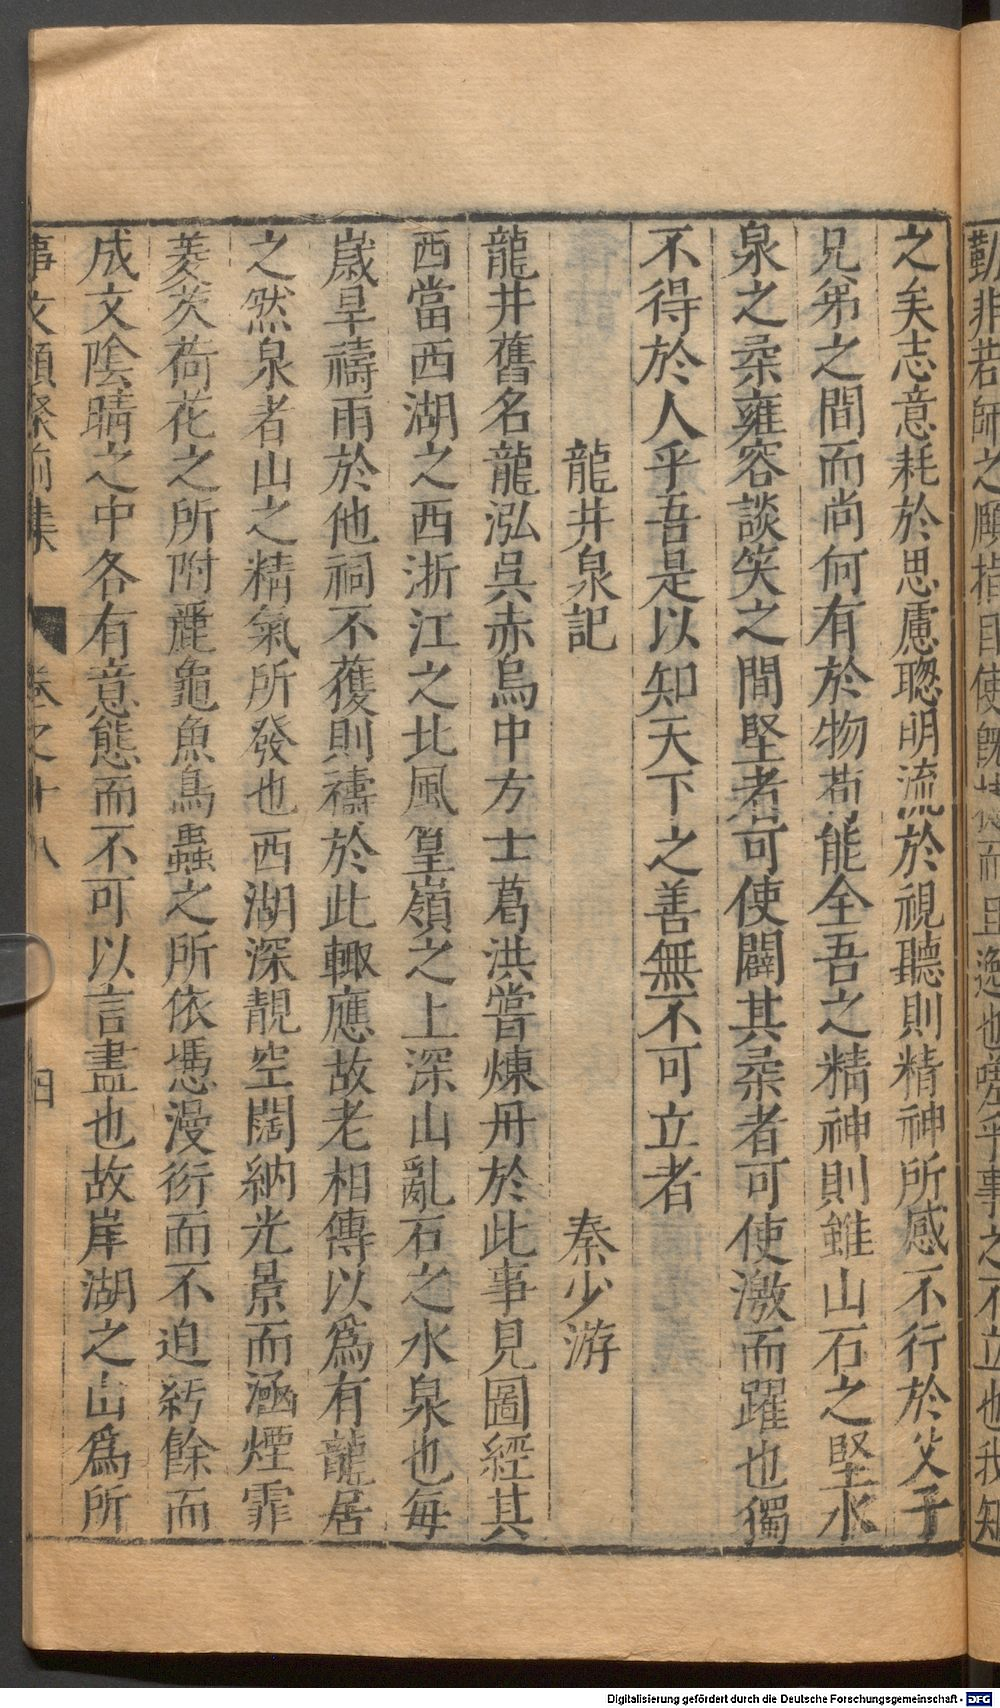 之矣志意耗於思慮聰明流於視聽則精神所感不行於父子
兄弟之間而尚何有於物苟能全吾之精神則雖山石之堅水
泉之柔雍容談笑之間堅者可使闢其柔者可使激而躍也獨
不得於人乎吾是以知天下之善無不可立者
龍井泉記 秦少游
龍井舊名龍泓呉赤烏中方士葛洪嘗煉丹於此事見圖經其
西當西湖之西浙江之北風篁嶺之上深山亂石之水泉也每
嵗旱禱雨於他祠不獲則禱於此輙應故老相傳以爲有龍居
之然泉者山之精氣所發也西湖深靚空闊納光景而涵煙霏
菱芡荷花之所附麗龜魚鳥蟲之所依慿漫衍而不迫紆餘而
成文陰晴之中各有意態而不可以言盡也故岸湖之山爲所
事文類聚前集 卷之十八 四
Digitalisierung gefördert durch die Deutsche Forschungsgemeinschaft - DFG